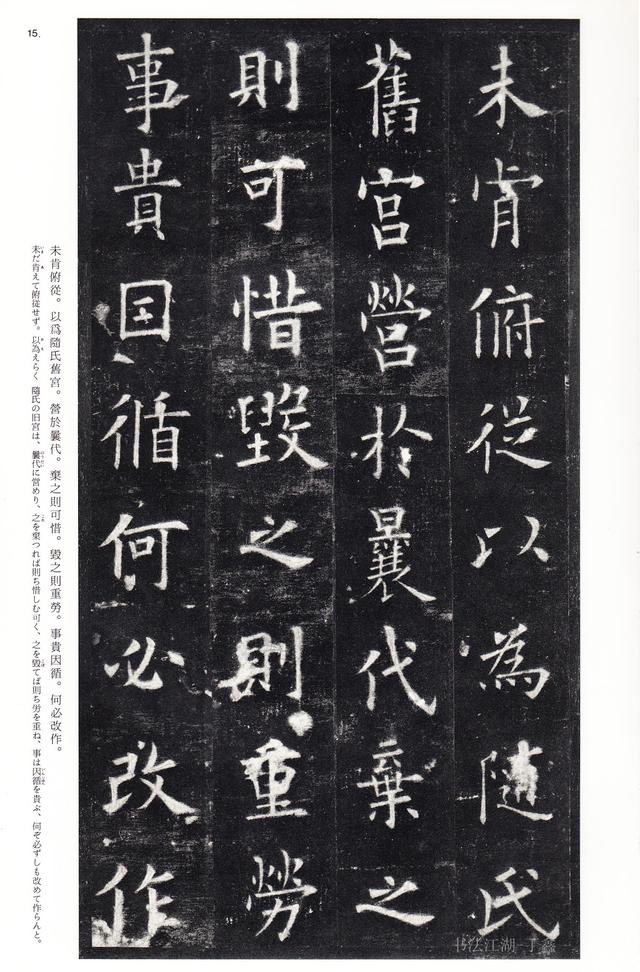 未肯俯從以為隨氏
舊宮營於曩代棄之
則可惜毀之則重勞
事貴因循何必改作
未肯俯從。以爲隨氏舊宮。營於曩代。棄之則可惜。毀之則重勞。事貴因循。何必改作。
未だ肯えて俯從せず。以為えらく隨氏の旧宮は、曩代に営めり、之を棄つれば則ち惜しむ可く、之を毀てば則ち労を重ね、事は因循を貴ぶ、何ぞ必ずしも改めて作らんと。
15.
书法江湖